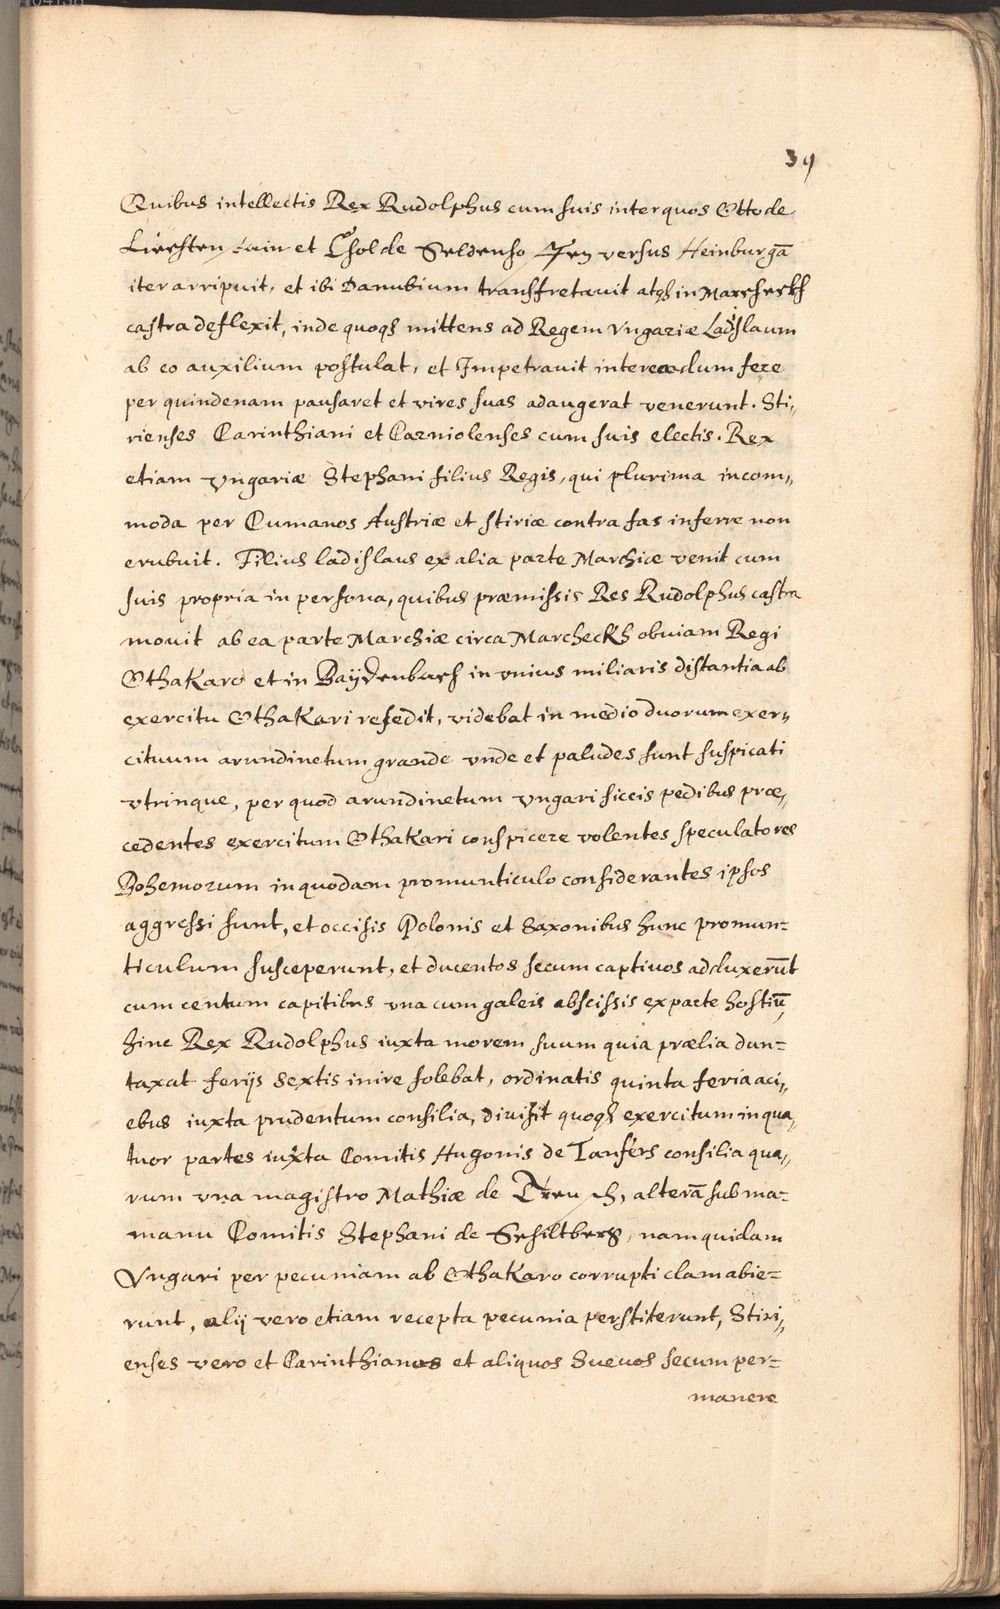 39
Quibus intellectis Rex Rudolphus cum suis inter quos Otto de
Liechten tain et Chol de Seldenho fen versus Heinburgā
iter arripuit, et ibi Danubium transfretauit atqȝ in Marcheckh
castra deflexit, inde quoqȝ mittens ad Regem Vngariæ Ladislaum
ab eo auxilium postulat, et Impetrauit interea dum fere
per quindenam pausaret et vires suas adaugerat venerunt. Sti„
rienses Carinthiani et Carniolenses cum suis electis. Rex
etiam Vngariæ Stephani filius Regis, qui plurima incom„
moda per Cumanos Austriæ et stiriæ contra fas inferre non
erubuit. Filius ladislaus ex alia parte Marchiæ venit cum
suis propria in persona, quibus præmissis Res Rudolphus castra
mouit ab ea parte Marchiæ circa Marcheckh obuiam Regi
OthaKaro et in Baÿdenbach in vnius miliaris distantia ab
exercitu OthaKari resedit, videbat in medio duorum exer„
cituum arundinetum grande vnde et paludes sunt suspicati
vtrinque, per quod arundinetum Vngari siccis pedibus præ„
cedentes exercitum OthaKari conspicere volentes speculatores
Bohemorum in quodam promunticulo considerantes ipsos
aggressi sunt, et occisis Polonis et Saxonibus hunc promun=
ticulum susceperunt, et ducentos secum captiuos adduxerūt
cum centum capitibus vna cum galeis abscissis ex parte hostiū,
hinc Rex Rudolphus iuxta morem suum quia prælia dun=
taxat ferijs sextis inire solebat, ordinatis quinta feria aci„
ebus iuxta prudentum consilia, diuisit quoqȝ exercitum in qua„
tuor partes iuxta Comitis Hugonis de Tanfers consilia qua„
rum vna magistro Mathiæ de Tren ch, alterā sub ma=
manu Comitis Stephani de Schiltberg, nam quidam
Vngari per pecuniam ab OthaKaro corrupti clam abie=
runt, alij vero etiam recepta pecunia perstiterunt, Stiri„
enses vero et Carinthianos et aliquos Sueuos secum per=
manere